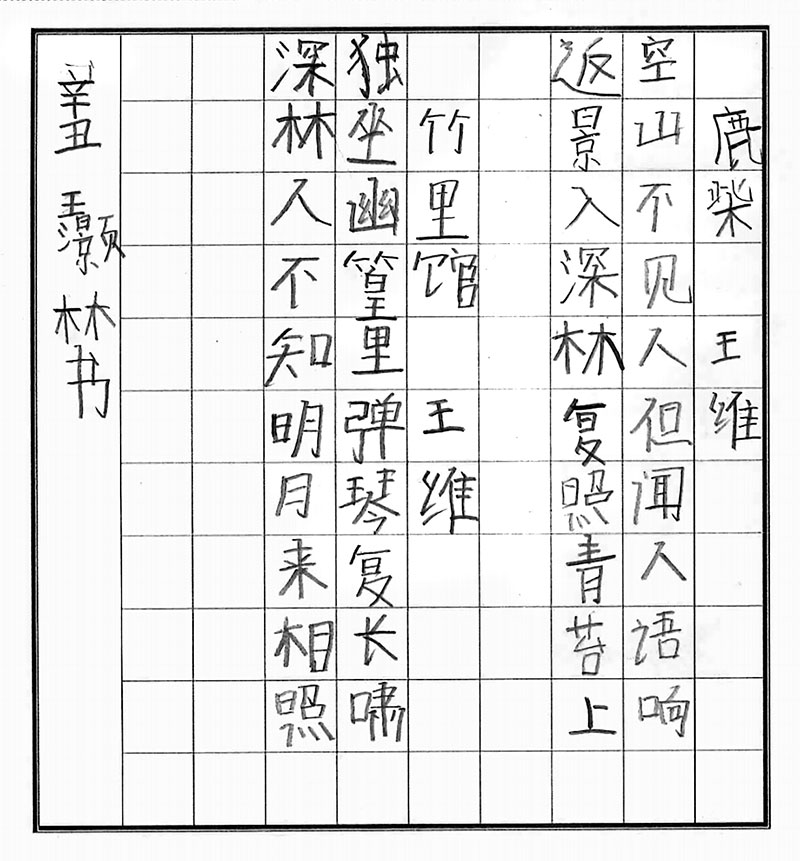 鹿柴 王维
空山不见人但闻人语响
返景入深林复照青苔上
竹里馆 王维
独坐幽篁里弹琴复长啸
深林人不知明月来相照
辛丑 王灏林书